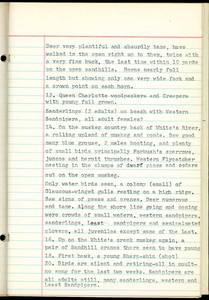 Deer very plentiful and absurdly tame, have
walked in the open right up to them, twice with
a very fine buck, the last time within 10 yards
on the open sandhills. Horns nearly full
length but showing only one very wide fork and
a crown point on each horn.
12. Queen Charlotte woodpeckers and Creepers
with young full grown.
Sanderlings (2 adults) on beach with Western
Sandpipers, all adult females?
14. On the muskeg country back of White's River,
a rolling upland of muskeg and pools. Saw good
many blue grouse, 2 males hooting, and plenty
of small birds principally Fortuna's sparrows,
juncos and hermit thrushes. Western Flycatcher
nesting in the clumps of dwarf pines and cedars
out on the open muskeg.
Only water birds seen, a colony (small) of
Glaucous-winged gulls resting on a high ridge.
Saw signs of geese and cranes. Deer numerous
and tame. Along the shore line going and coming
were crowds of small waders, western sandpipers,
sanderlings, least sandpipers and semipalmated
plovers, all juveniles except some of the last.
16. Up on the White's creek muskeg again, a
pair of Sandhill cranes there seem to have young
18. First hawk, a young Sharp-shin (shot)
20. Birds are silent and retiring-all in moult-
no song for the last two weeks. Sandpipers are
all still, many sanderlings, western and
least Sandpipers.